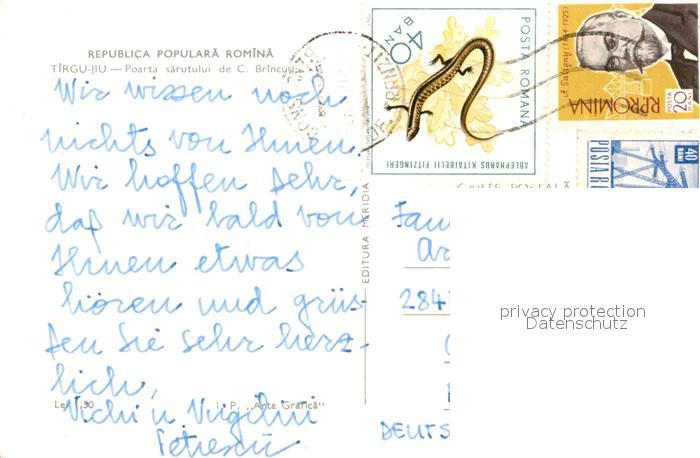 REPUBLICA POPULARĂ ROMÎNĂ
TÎRGU-JIU — Poarta sărutului de C. Brîncuși
Wir wissen noch
nichts von Ihnen.
Wir hoffen sehr,
daß wir bald von
Ihnen etwas
hören und grüs-
sen Sie sehr herz-
lich,
Vichi u Virgiliu
Petrescu
Lei 1,50
I. P. „Arta Grafică"
EDITURA MERIDIA
CARTE POSTALĂ
Fam
Ar
284
DEUTS
40 BANI
POSTA ROMANA
ABLEPHARUS KITAIBELII FITZINGERI
A. Saligny (1854-1925)
RPROMINA
POSTA 20 BANI
40 BANI
POSTA R
privacy protection
Datenschutz